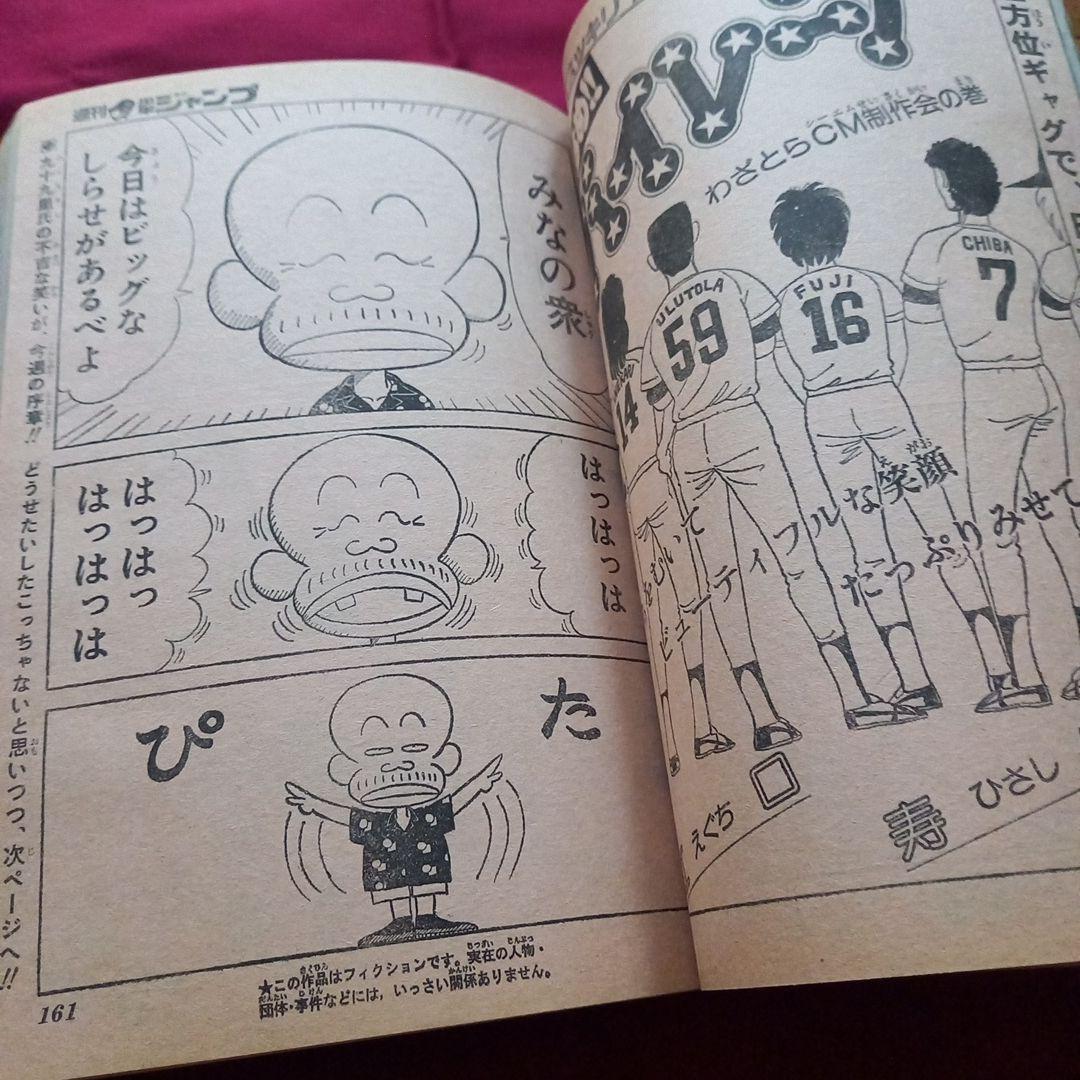 週刊少年ジャンプ
みなの衆
今日はビッグな
しらせがあるべよ
はっはっは
はっはっ
はっはっは
ぴた
九十九里氏の不吉な笑いが、今週の序章!! どうせたいしたこっちゃないと思いつつ、次ページへ!!
★この作品はフィクションです。実在の人物・
団体・事件などには、いっさい関係ありません。
161
わざとらCM制作会の巻
方位ギャグで
14
ULUTOLA
59
FUJI
16
CHIBA
7
むいて
ビューティフルな笑顔
たっぷりみせて
えぐち
寿
ひさし